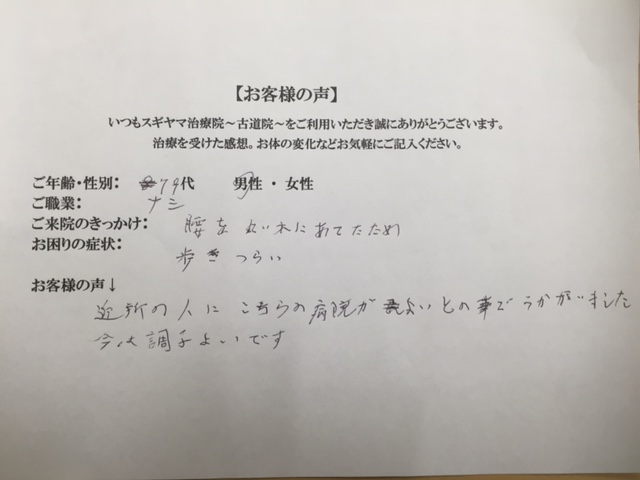 【お客様の声】
いつもスギヤマ治療院～古道院～をご利用いただき誠にありがとうございます。
治療を受けた感想。お体の変化などお気軽にご記入ください。
ご年齢・性別： 79代 男性 ・ 女性
ご職業： ナシ
ご来院のきっかけ： 腰を 丸い木にあてたため
お困りの症状： 歩き つらい
お客様の声↓
近所の人に こちらの病院が よいとの事で うかがいました
今は調子よいです